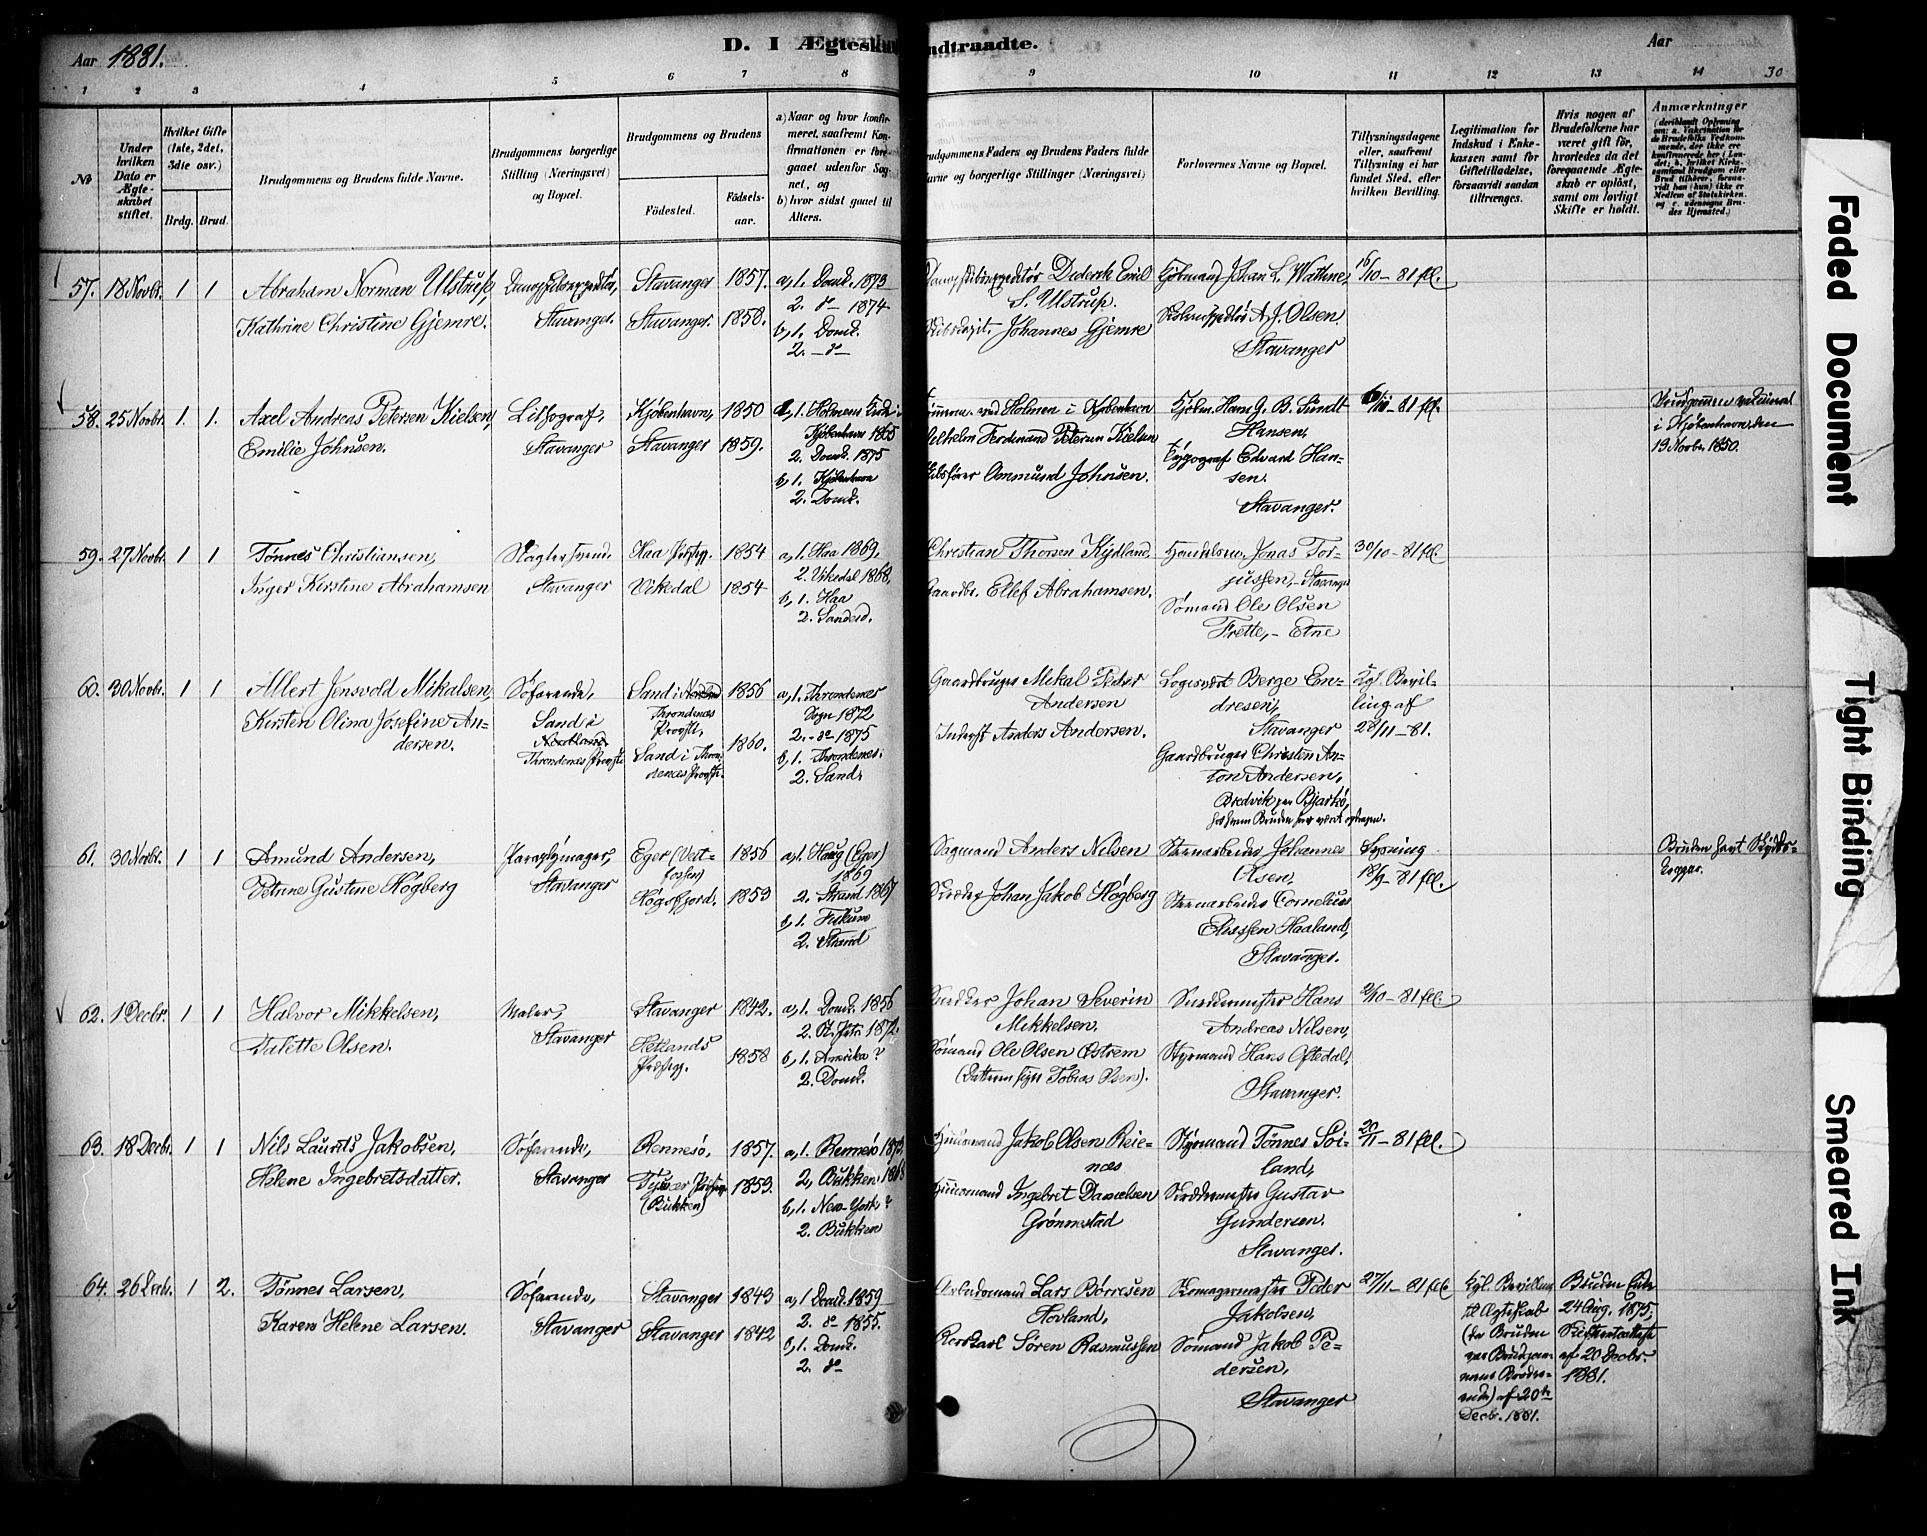 Aar 1881.
D. I Ægteska
ndtraadte.
Aar
30
1 2 3 4 5 6 7 8 9 10 11 12 13 14
No
Under hvilken Dato er Ægteskabet stiftet.
Hvilket Gifte (1ste, 2det, 3die osv.)
Brdg. Brud.
Brudgommens og Brudens fulde Navne.
Brudgommens borgerlige Stilling (Næringsvei) og Bopæl.
Brudgommens og Brudens
Fødested.
Fødselsaar.
a) Naar og hvor konfirmeret, saafremt Konfirmationen er foregaaet udenfor Sognet, og
b) hvor sidst gaaet til Alters.
rudgommens Faders og Brudens Faders fulde
avne og borgerlige Stillinger (Næringsvei)
Forlovernes Navne og Bopæl.
Tillysningsdagene eller, saafremt Tillysning ei har fundet Sted, efter hvilken Bevilling.
Legitimation for Indskud i Enkekassen samt for Giftetilladelse, forsaavidt saadan tiltrænges.
Hvis nogen af Brudefolkene har været gift før, hvorledes da det foregaaende Ægteskab er opløst, samt om lovligt Skifte er holdt.
Anmærkninger
57. 18 Novbr. 1 1
Abraham Norman Ulstrup,
Kathrine Christine Gjemre.
Stavanger.
Stavanger 1857.
Stavanger. 1858.
a, 1. Domk. 1873
2. do 1874
b, 1. Domk.
2. do
Diderik Emil
S. Ulstrup.
Johannes Gjemre
Kjøbmand Johan L. Wathne,
A. J. Olsen.
Stavanger
16/10 – 81 fl.
58. 25 Novbr. 1. 1.
Axel Andreas Petersen Kielsen,
Emilie Johnsen.
Lithograf,
Stavanger
Kjøbenhavn, 1850
Stavanger 1859.
a, 1. Holmens Kirke i
Kjøbenhavn 1865
2. Domk. 1875
b, 1. Kjøbenhavn
2. Domk.
ved Holmen i Kjøbenhavn
Vilhelm Ferdinand Petersen Kielsen
Ommund Johnsen.
Kjøbm. Hans G. B. Sundt-
Hansen,
Typograf Edvard Han-
sen.
Stavanger.
/10 – 81 fl.
Brudgommen vaccineret
i Kjøbenhavn den
19 Novbr. 1850.
59. 27 Novbr. 1 1
Tønnes Christiansen,
Inger Kirstine Abrahamsen
Slagtersvend.
Stavanger
Haa Præstgj. 1854
Vikedal 1854
a, 1. Haa 1869.
2. Vikedal 1868,
b, 1. Haa
2. Sandeid.
Christian Thorsen Kydland.
Gaardbr. Ellef Abrahamsen.
Jonas Tor-
jussen, – Stavanger
Sømand Ole Olsen
Frette, – Etne
30/10 – 81 fl.
60. 30 Novbr. 1 1
Allert Jensvold Mikalsen,
Kirsten Olina Josefine An-
dersen.
Søfarende,
Sand i
Nordland
Throndenes Provsti
Sand i 1856
Throndenes
Provsti,
Sand i Thron-
denes Provsti. 1860.
a, 1. Throndenes
Sogn 1872
2. – do 1875
b, 1. Throndenes.
2. Sand.
Gaardbruger Mikal Peder
Andersen
Inderst Anders Andersen.
Logivært Berge En-
dresen,
Stavanger
Gaardbruger Christen An-
ton Andersen,
Bredvik per Bjarkø,
hos hvem Bruden har været
Kgl. Bevil-
ling af
28/11 – 81.
61. 30 Novbr. 1 1
Amund Andersen,
Petrine Gustine Høgberg
Paraplymager,
Stavanger
Eger (Vest-
fossen) 1856
Høgsfjord. 1859
a, 1. Haug (Eger)
1869
2. Strand 1867
b, 1.
2. Strand
Anders Nilsen
Johan Jakob Høgberg
Stenarbeider Johannes
Olsen,
Stenarbeider Cornelius
Elissen Haaland,
Stavanger.
Lysning
18/9 – 81 fl.
Bruden havt
62. 1 Decbr. 1 1
Halvor Mikkelsen,
Valette Olsen.
Maler,
Stavanger
Stavanger 1842.
Hetlands
Præstgj. 1858
a, 1. Domk. 1856
2. St. Petri 1872.
b, 1. Amerika?
2. Domk.
Snedker Johan Severin
Mikkelsen.
Sømand Ole Olsen Østrem
Snedkermester Hans
Andreas Nilsen,
Styrmand Hans Oftedal,
Stavanger.
2/10 – 81 fl.
63. 18 Decbr. 1 1
Nils Laurits Jakobsen,
Helene Ingebretsdatter.
Søfarende,
Stavanger
Rennesø, 1857.
(Bukken) 1859.
a, 1. Rennesø 1873
2, Bukken
b, 1. New-York?
2. Bukken
Husmand Jakob Olsen Reie-
næs
Husmand Ingebret Danielsen
Grønnestad
Styrmand Tønnes Soi-
land,
Gustav
Gundersen.
Stavanger.
20/11 – 81 fl.
64. 26 Decbr. 1 2.
Tønnes Larsen,
Karen Helene Larsen.
Søfarende,
Stavanger
Stavanger 1843
Stavanger 1842
a, 1 Domk. 1859
2. do 1855.
b, 1. Domk.
2. do
Arbeidsmand Lars Børresen
Hovland,
Søren Rasmussen
Peder
Jakobsen,
Sømand Jakob Pe-
dersen,
Stavanger
27/11 – 81 fl.
Kgl. Bevilling
til Ægteskab
(da Bruden
var Brudgom-
mens Broders
Enke) af 20de
Decb. 1881.
Bruden Enke
24 Aug. 1875,
Skifteattest
af 20 Decbr.
1881.
Faded Document
Tight Binding
Smeared Ink